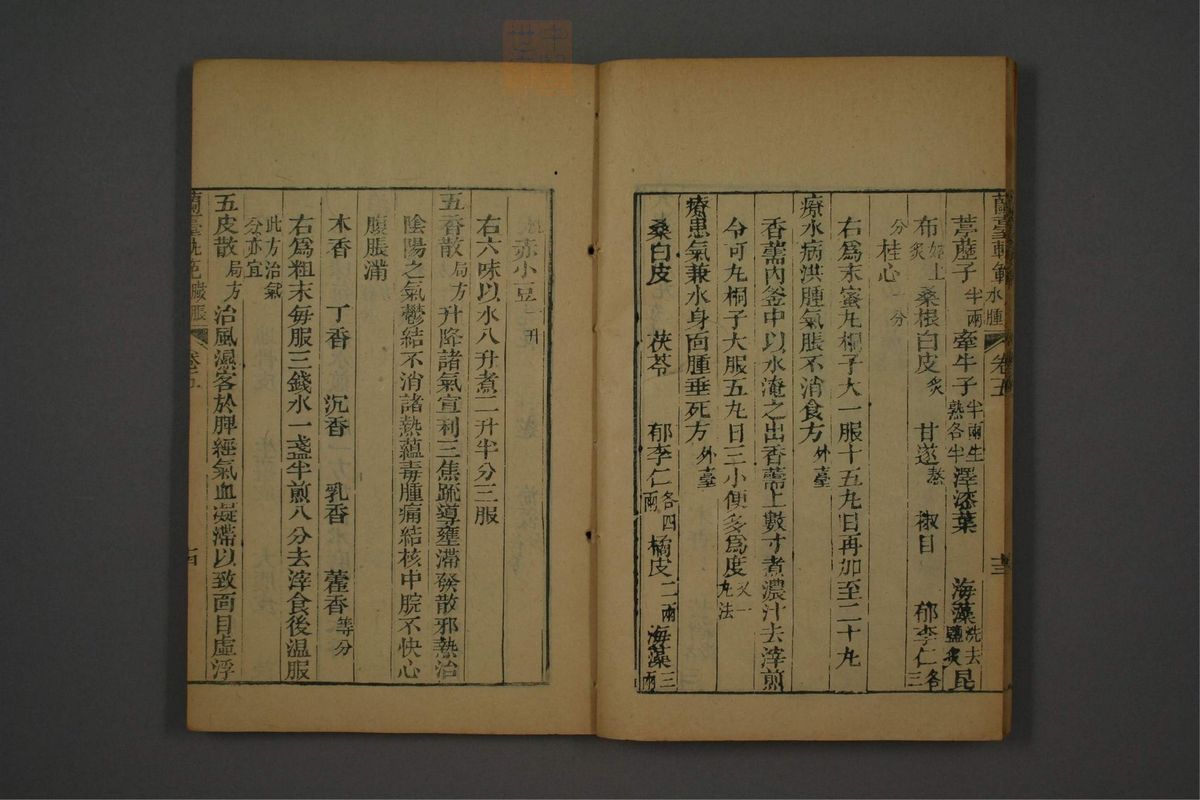 蘭臺軌範 水腫 卷五 十三
葶藶子半兩 牽牛子半兩生熟各半 澤漆葉 海藻洗去鹽炙 昆
布如上炙 桑根白皮炙 甘遂熬 椒目 郁李仁各三
分 桂心一分
右爲末蜜丸桐子大一服十五丸日再加至二十丸
療水病洪腫氣脹不消食方外臺
香薷內釜中以水淹之出香薷上數寸煮濃汁去滓煎
令可丸桐子大服五丸日三小便多爲度又一丸法
療患氣兼水身面腫垂死方外臺
桑白皮 茯苓 郁李仁各四兩 橘皮二兩 海藻三兩
赤小豆一升
右六味以水八升煮二升半分三服
五香散局方 升降諸氣宣利三焦疏導壅滯發散邪熱治
陰陽之氣鬱結不消諸熱蘊毒腫痛結核中脘不快心
腹脹滿
木香 丁香 沉香 乳香 藿香等分
右爲粗末每服三錢水一盞半煎八分去滓食後温服
此方治氣分亦宜
五皮散局方 治風濕客於脾經氣血凝滯以致面目虛浮
蘭臺軌範 臌脹 卷五 十四